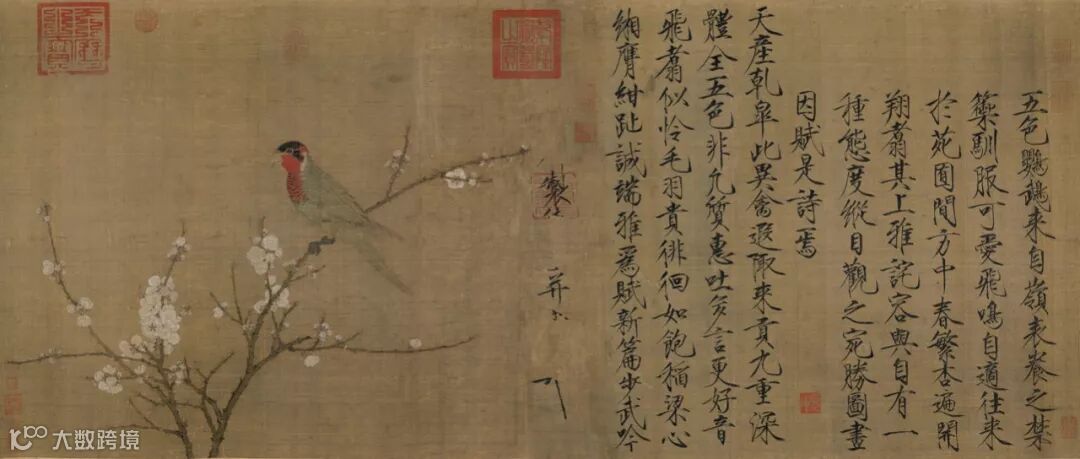 五色鸚鵡來自嶺表養之禁
籞馴服可愛飛鳴自適往來
於苑囿間方中春繁杏遍開
翔翥其上雅詫容與自有一
種態度縱目觀之宛勝圖畫
因賦是詩焉
天產乾皐此異禽遐陬來貢九重深
體全五色非凡質惠吐多言更好音
飛翥似怜毛羽貴徘徊如飽稻粱心
緗膺紺趾誠端雅爲賦新篇步武吟
製
并
大数跨境